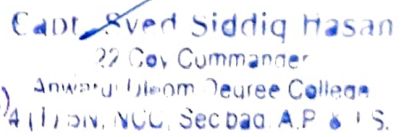 Capt. Syed Siddiq Hasan
22 Coy Cummander
Anwarul Uloom Degree College
4 (T) BN, NCC, Secbad. A.P & T.S.